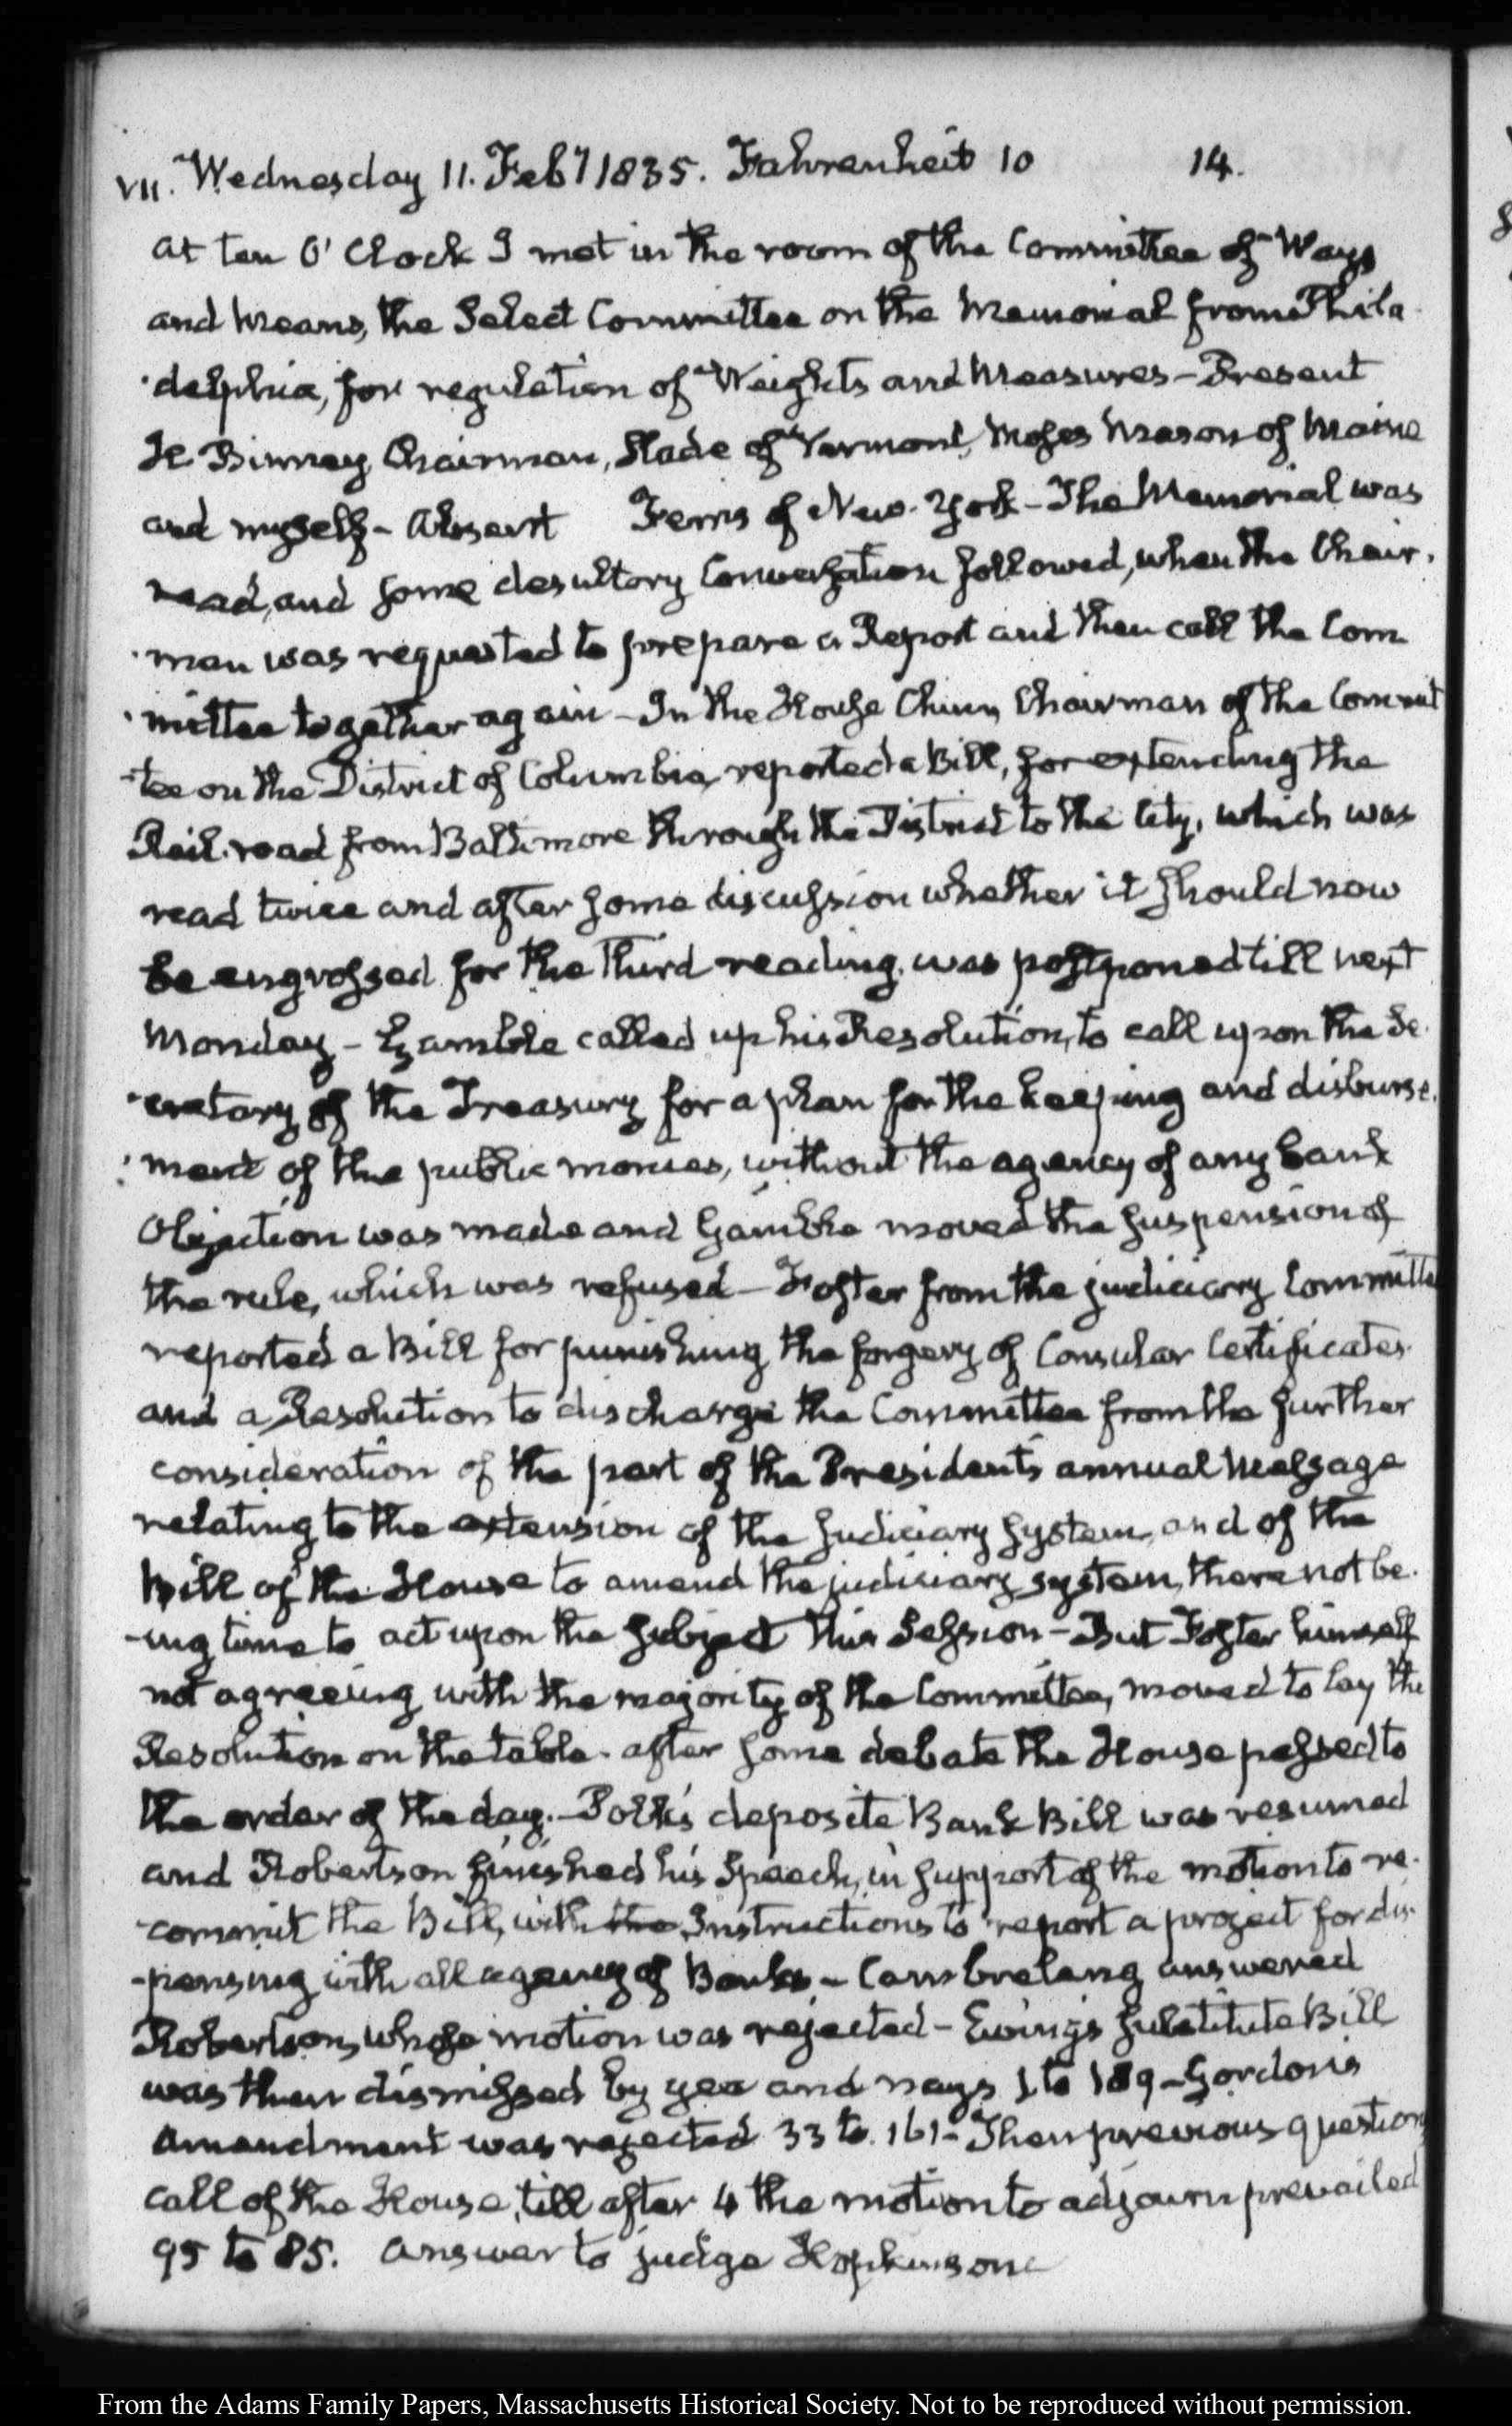 VII. Wednesday 11. Feby 1835. Fahrenheit 10 14.
At ten O'Clock I met in the room of the Committee of Ways
and Means, the Select Committee on the Memorial from Phila-
-delphia, for regulation of Weights and Measures - Present
H. Binney, Chairman, Slade of Vermont, Moses Mason of Maine
and myself - Absent Ferris of New-York - The Memorial was
read, and some desultory Conversation followed, when the Chair-
-man was requested to prepare a Report and then call the Com
-mittee together again - In the House Chinn Chairman of the Commit
-tee on the District of Columbia, reported a Bill, for extending the
Rail-road from Baltimore through the District to the City, which was
read twice and after some discussion whether it should now
be engrossed for the third reading, was postponed till next
Monday - Gamble called up his Resolution, to call upon the Se-
-cretary of the Treasury for a plan for the keeping and disburse-
-ment of the public monies, without the agency of any bank
Objection was made and Gamble moved the suspension of
the rule, which was refused - Foster from the judiciary Committee
reported a Bill for punishing the forgery of Consular Certificates
and a Resolution to discharge the Committee from the further
consideration of the part of the President's annual Message
relating to the extension of the Judiciary System, and of the
bill of the House to amend the judiciary system, there not be-
-ing time to act upon the subject this Session - But Foster himself
not agreeing with the majority of the Committee, moved to lay the
Resolution on the table. After some debate the House passed to
the order of the day. - Polk's deposite Bank Bill was resumed
and Robertson finished his Speech, in support of the motion to re-
-commit the Bill, with the Instructions to report a project for dis-
-pensing with all agency of Banks - Cambreleng answered
Robertson, whose motion was rejected - Ewing's substitute Bill
was then dismissed by yea and nays 1 to 189 - Gordon's
Amendment was rejected 33 to 161 - Then previous question
call of the House, till after 4 the motion to adjourn prevailed
95 to 85. Answer to judge Hopkinson
From the Adams Family Papers, Massachusetts Historical Society. Not to be reproduced without permission.